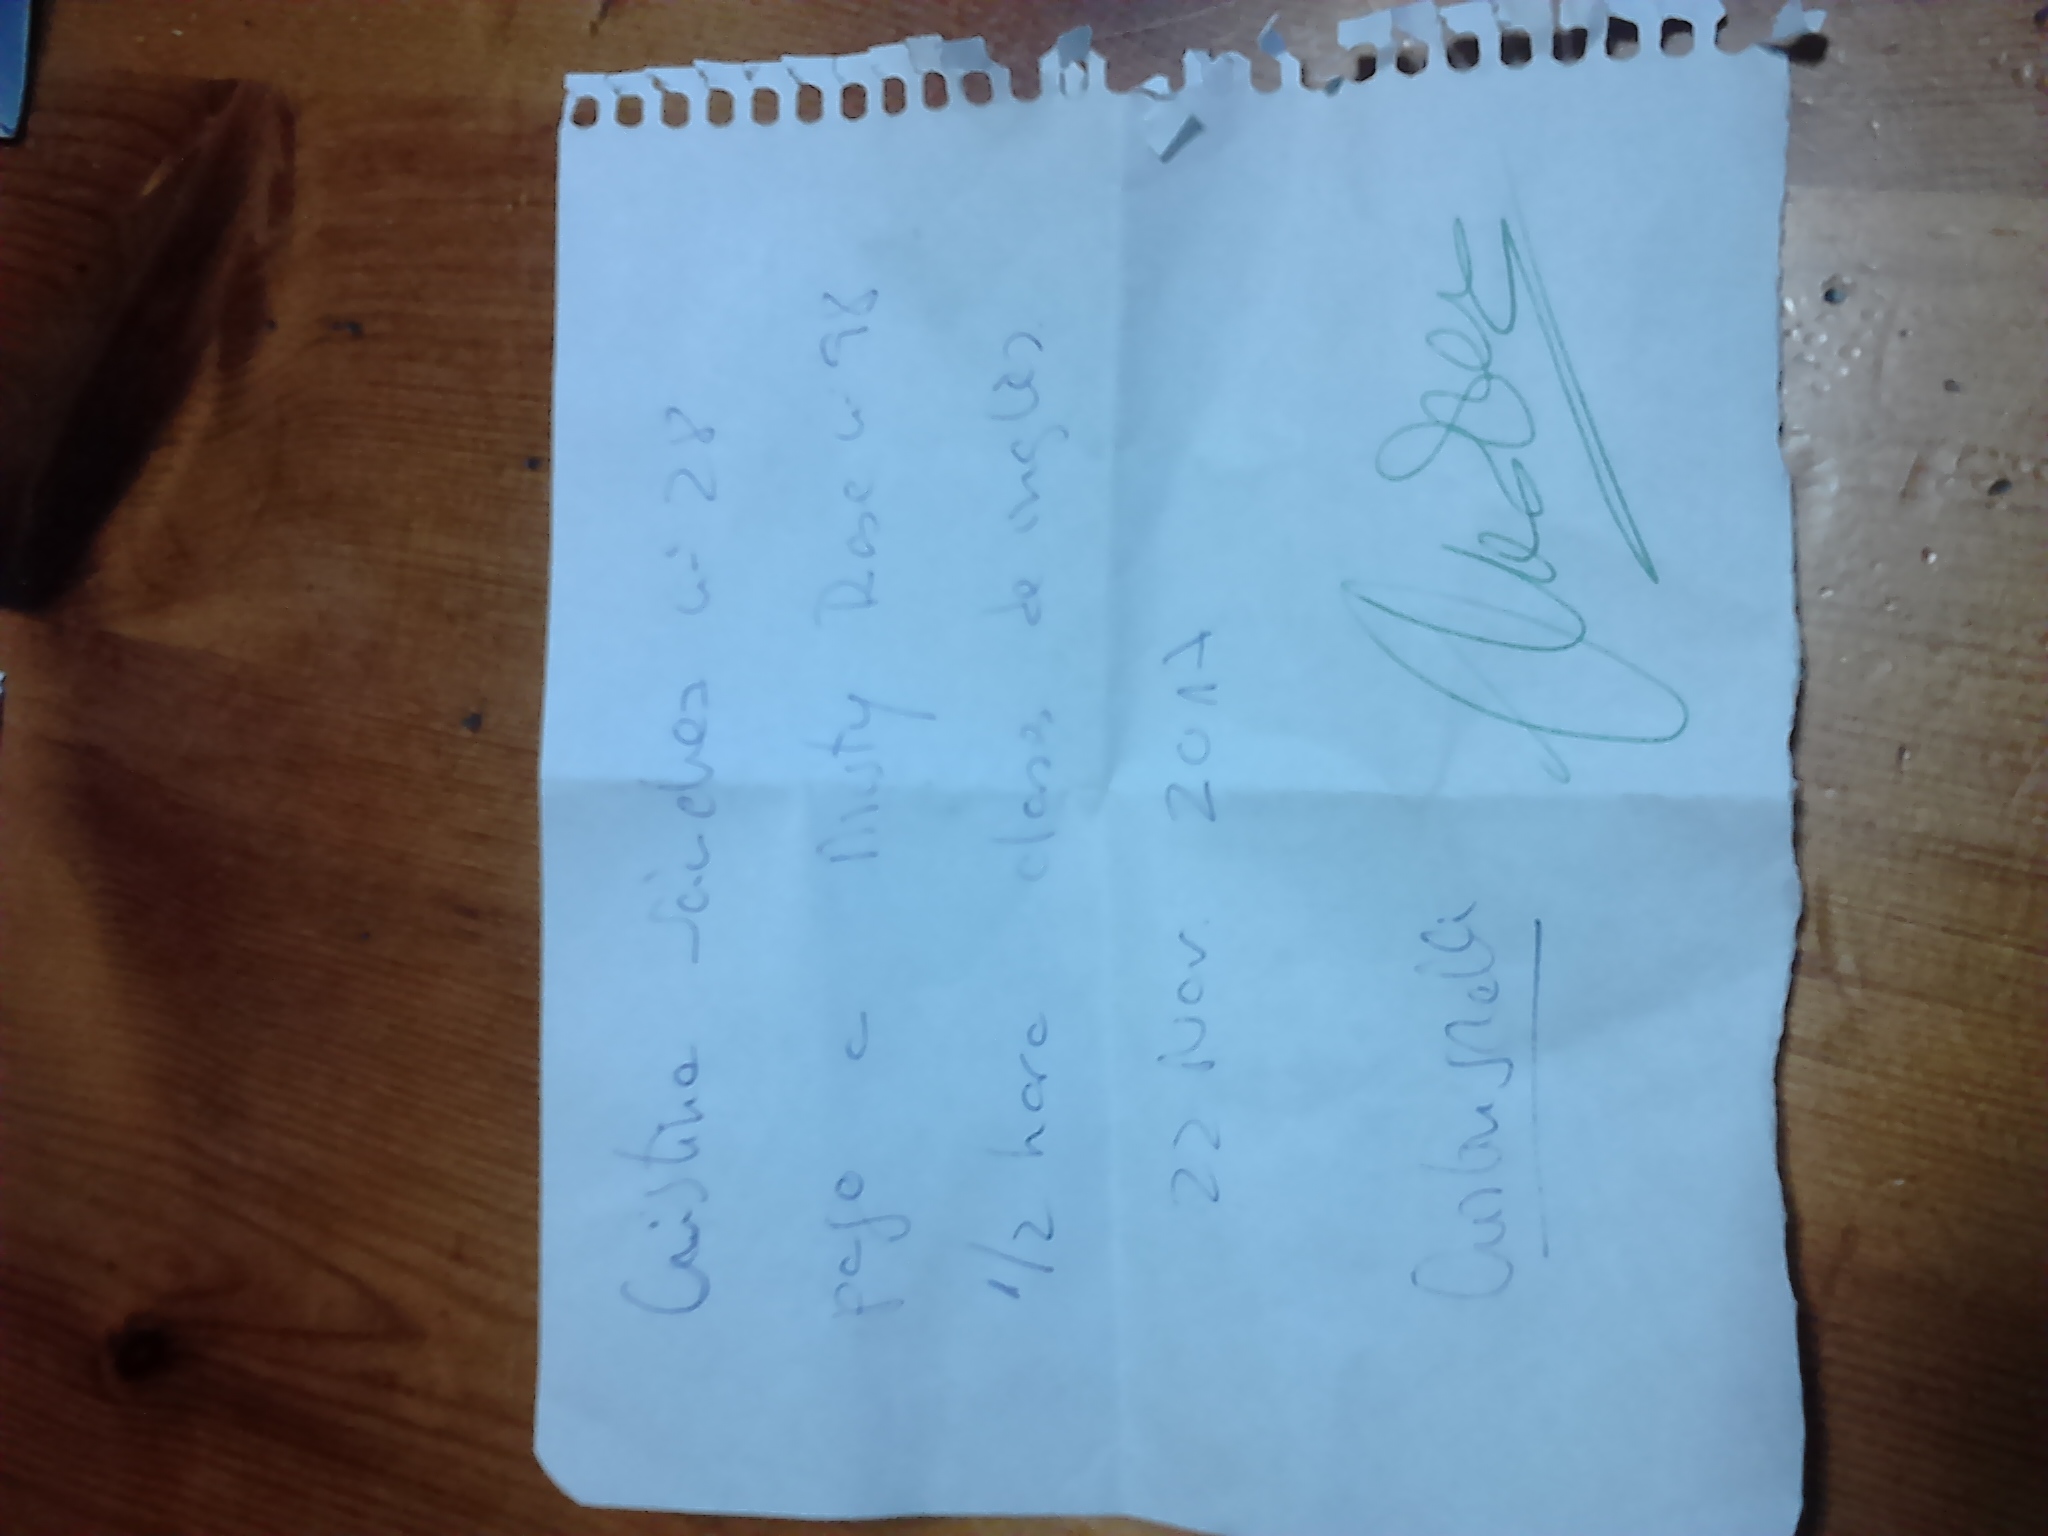 Cristina Sánchez nº 28
pago a Misty Rose nº 98
1/2 hora clases de inglés
22 Nov. 2017